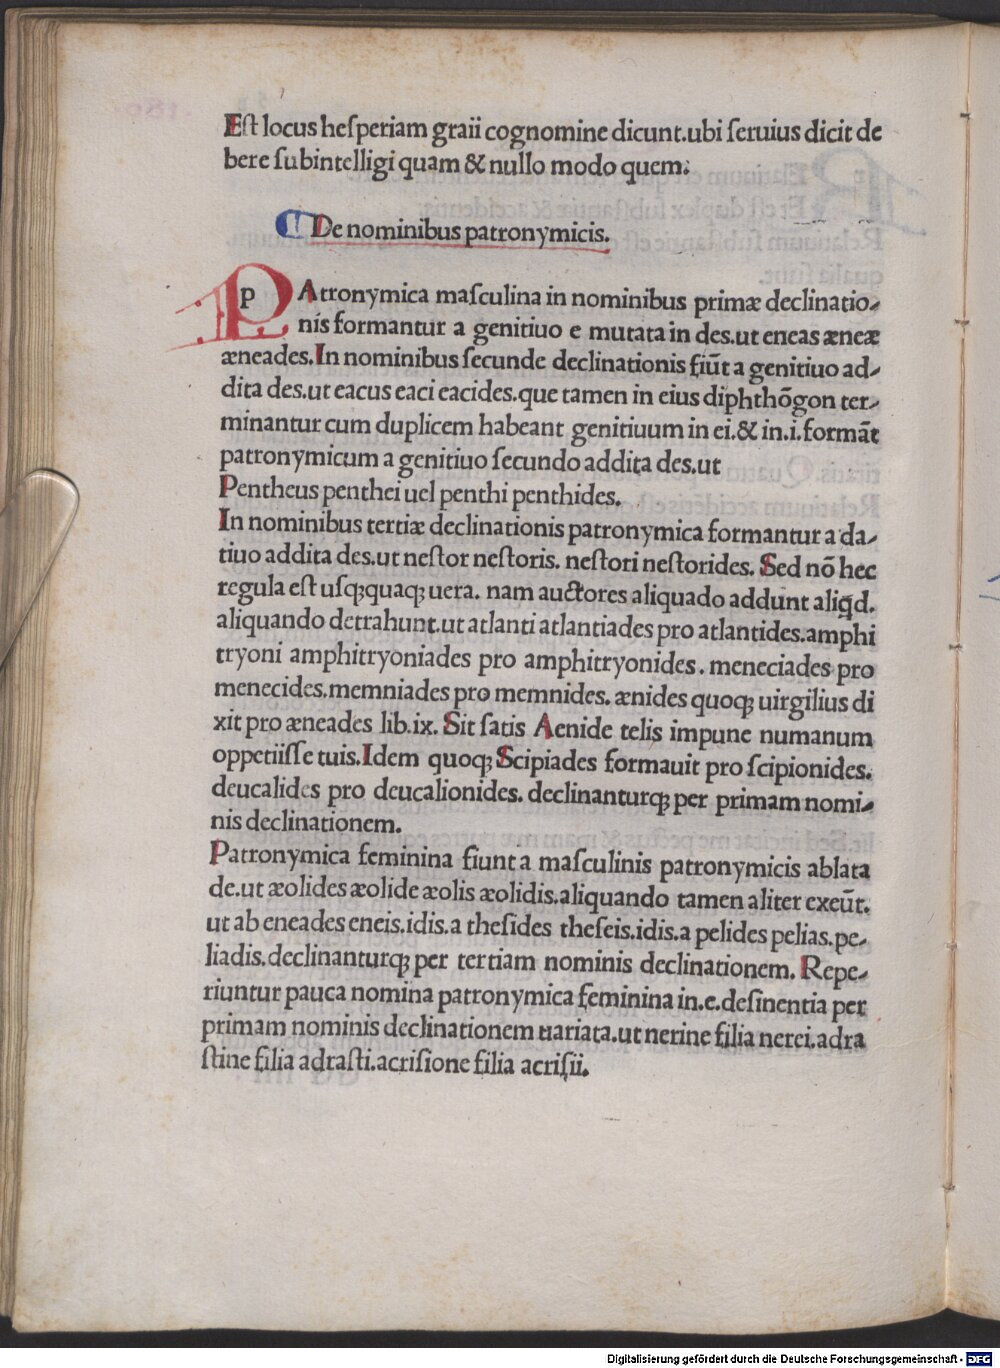 Eſt locus heſperiam graii cognomine dicunt.ubi ſeruius dicit de
bere ſubintelligi quam & nullo modo quem.
De nominibus patronymicis.
PAtronymica maſculina in nominibus primæ declinatio-
nis formantur a genitiuo e mutata in des.ut eneas æneæ
æneades.In nominibus ſecunde declinationis fiūt a genitiuo ad-
dita des.ut eacus eaci eacides.que tamen in eius diphthōgon ter-
minantur cum duplicem habeant genitiuum in ei.& in.i.formāt
patronymicum a genitiuo ſecundo addita des.ut
Pentheus penthei uel penthi penthides.
In nominibus tertiæ declinationis patronymica formantur a da-
tiuo addita des.ut neſtor neſtoris. neſtori neſtorides. Sed nō hec
regula eſt uſqꝫquaqꝫ uera. nam auctores aliquado addunt aliꝗd.
aliquando detrahunt.ut atlanti atlantiades pro atlantides.amphi
tryoni amphitryoniades pro amphitryonides. meneciades pro
menecides.memniades pro memnides. ænides quoqꝫ uirgilius di
xit pro æneades lib.ix. Sit ſatis Aenide telis impune numanum
oppetiiſſe tuis.Idem quoqꝫ Scipiades formauit pro ſcipionides.
deucalides pro deucalionides. declinanturqꝫ per primam nomi-
nis declinationem.
Patronymica feminina fiunt a maſculinis patronymicis ablata
de.ut æolides æolide æolis æolidis.aliquando tamen aliter exeūt.
ut ab eneades eneis.idis.a theſides theſeis.idis.a pelides pelias.pe-
liadis.declinanturqꝫ per tertiam nominis declinationem. Repe-
riuntur pauca nomina patronymica feminina in.e.deſinentia per
primam nominis declinationem uariata.ut nerine filia nerei.adra
ſtine filia adraſti.acriſione filia acriſii.
Digitalisierung gefördert durch die Deutsche Forschungsgemeinschaft - DFG